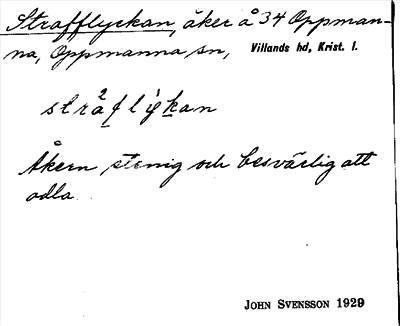 Strafflyckan, åker å 34 Oppman-
na, Oppmanna sn, Villands hd, Krist. l.
stra²flỳkan
Åkern stenig och besvärlig att
odla
JOHN SVENSSON 1929